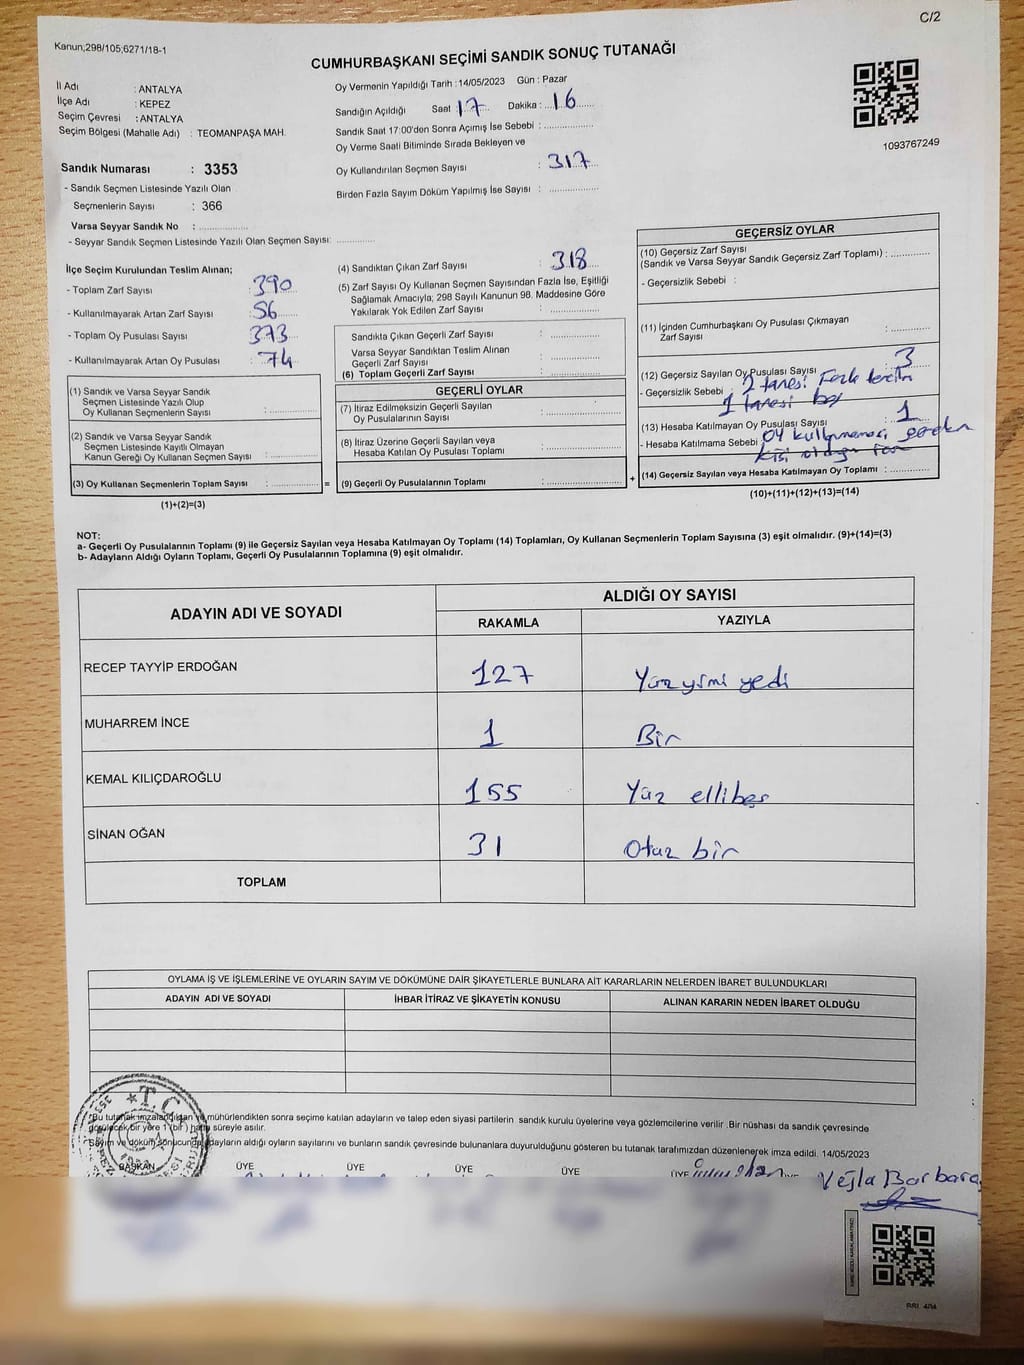 C/2
Kanun;298/105;6271/18-1
CUMHURBAŞKANI SEÇİMİ SANDIK SONUÇ TUTANAĞI
İl Adı : ANTALYA
İlçe Adı : KEPEZ
Seçim Çevresi : ANTALYA
Seçim Bölgesi (Mahalle Adı) : TEOMANPAŞA MAH.
Sandık Numarası : 3353
- Sandık Seçmen Listesinde Yazılı Olan
Seçmenlerin Sayısı : 366
Varsa Seyyar Sandık No : ................
- Seyyar Sandık Seçmen Listesinde Yazılı Olan Seçmen Sayısı: ............
Oy Vermenin Yapıldığı Tarih : 14/05/2023 Gün : Pazar
Sandığın Açıldığı Saat 17 Dakika : 16
Sandık Saat 17:00'den Sonra Açımış İse Sebebi : ................
Oy Verme Saati Bitiminde Sırada Bekleyen ve
Oy Kullandırılan Seçmen Sayısı : 317
Birden Fazla Sayım Döküm Yapılmış İse Sayısı : ................
1093767249
İlçe Seçim Kurulundan Teslim Alınan;
- Toplam Zarf Sayısı : 390
- Kullanılmayarak Artan Zarf Sayısı : 56
- Toplam Oy Pusulası Sayısı : 373
- Kullanılmayarak Artan Oy Pusulası : 74
(1) Sandık ve Varsa Seyyar Sandık
Seçmen Listesinde Yazılı Olup
Oy Kullanan Seçmenlerin Sayısı : ................
(2) Sandık ve Varsa Seyyar Sandık
Seçmen Listesinde Kayıtlı Olmayan
Kanun Gereği Oy Kullanan Seçmen Sayısı : ................
(3) Oy Kullanan Seçmenlerin Toplam Sayısı : ................ =
(1)+(2)=(3)
(4) Sandıktan Çıkan Zarf Sayısı : 318
(5) Zarf Sayısı Oy Kullanan Seçmen Sayısından Fazla İse, Eşitliği
Sağlamak Amacıyla; 298 Sayılı Kanunun 98. Maddesine Göre
Yakılarak Yok Edilen Zarf Sayısı : ................
Sandıkta Çıkan Geçerli Zarf Sayısı : ................
Varsa Seyyar Sandıktan Teslim Alınan
Geçerli Zarf Sayısı : ................
(6) Toplam Geçerli Zarf Sayısı : ................
GEÇERLİ OYLAR
(7) İtiraz Edilmeksizin Geçerli Sayılan
Oy Pusulalarının Sayısı : ................
(8) İtiraz Üzerine Geçerli Sayılan veya
Hesaba Katılan Oy Pusulası Toplamı : ................
(9) Geçerli Oy Pusulalarının Toplamı : ................ +
GEÇERSİZ OYLAR
(10) Geçersiz Zarf Sayısı
(Sandık ve Varsa Seyyar Sandık Geçersiz Zarf Toplamı) : ............
- Geçersizlik Sebebi :
(11) İçinden Cumhurbaşkanı Oy Pusulası Çıkmayan
Zarf Sayısı : ............
(12) Geçersiz Sayılan Oy Pusulası Sayısı : 3
- Geçersizlik Sebebi : 2 tanesi Fazla tercih
1 tanesi boş
(13) Hesaba Katılmayan Oy Pusulası Sayısı : 1
- Hesaba Katılmama Sebebi : oy kullanmaması gereken
kişi olduğu
(14) Geçersiz Sayılan veya Hesaba Katılmayan Oy Toplamı : ............
(10)+(11)+(12)+(13)=(14)
NOT:
a- Geçerli Oy Pusulalarının Toplamı (9) ile Geçersiz Sayılan veya Hesaba Katılmayan Oy Toplamı (14) Toplamları, Oy Kullanan Seçmenlerin Toplam Sayısına (3) eşit olmalıdır. (9)+(14)=(3)
b- Adayların Aldığı Oyların Toplamı, Geçerli Oy Pusulalarının Toplamına (9) eşit olmalıdır.
ADAYIN ADI VE SOYADI
ALDIĞI OY SAYISI
RAKAMLA YAZIYLA
RECEP TAYYİP ERDOĞAN 127 Yüz yirmi yedi
MUHARREM İNCE 1 Bir
KEMAL KILIÇDAROĞLU 155 Yüz ellibeş
SİNAN OĞAN 31 Otuz bir
TOPLAM
OYLAMA İŞ VE İŞLEMLERİNE VE OYLARIN SAYIM VE DÖKÜMÜNE DAİR ŞİKAYETLERLE BUNLARA AİT KARARLARIN NELERDEN İBARET BULUNDUKLARI
ADAYIN ADI VE SOYADI İHBAR İTİRAZ VE ŞİKAYETİN KONUSU ALINAN KARARIN NEDEN İBARET OLDUĞU
T.C.
"Bu tutanak imzalandıktan ve mühürlendikten sonra seçime katılan adayların ve talep eden siyasi partilerin sandık kurulu üyelerine veya gözlemcilerine verilir. Bir nüshası da sandık çevresinde
görülecek bir yere 1 (bir) hafta süreyle asılır.
Sayım ve döküm sonucunda adayların aldığı oyların sayılarını ve bunların sandık çevresinde bulunanlara duyurulduğunu gösteren bu tutanak tarafımızdan düzenlenerek imza edildi. 14/05/2023
BAŞKAN ÜYE ÜYE ÜYE ÜYE ÜYE ÜYE